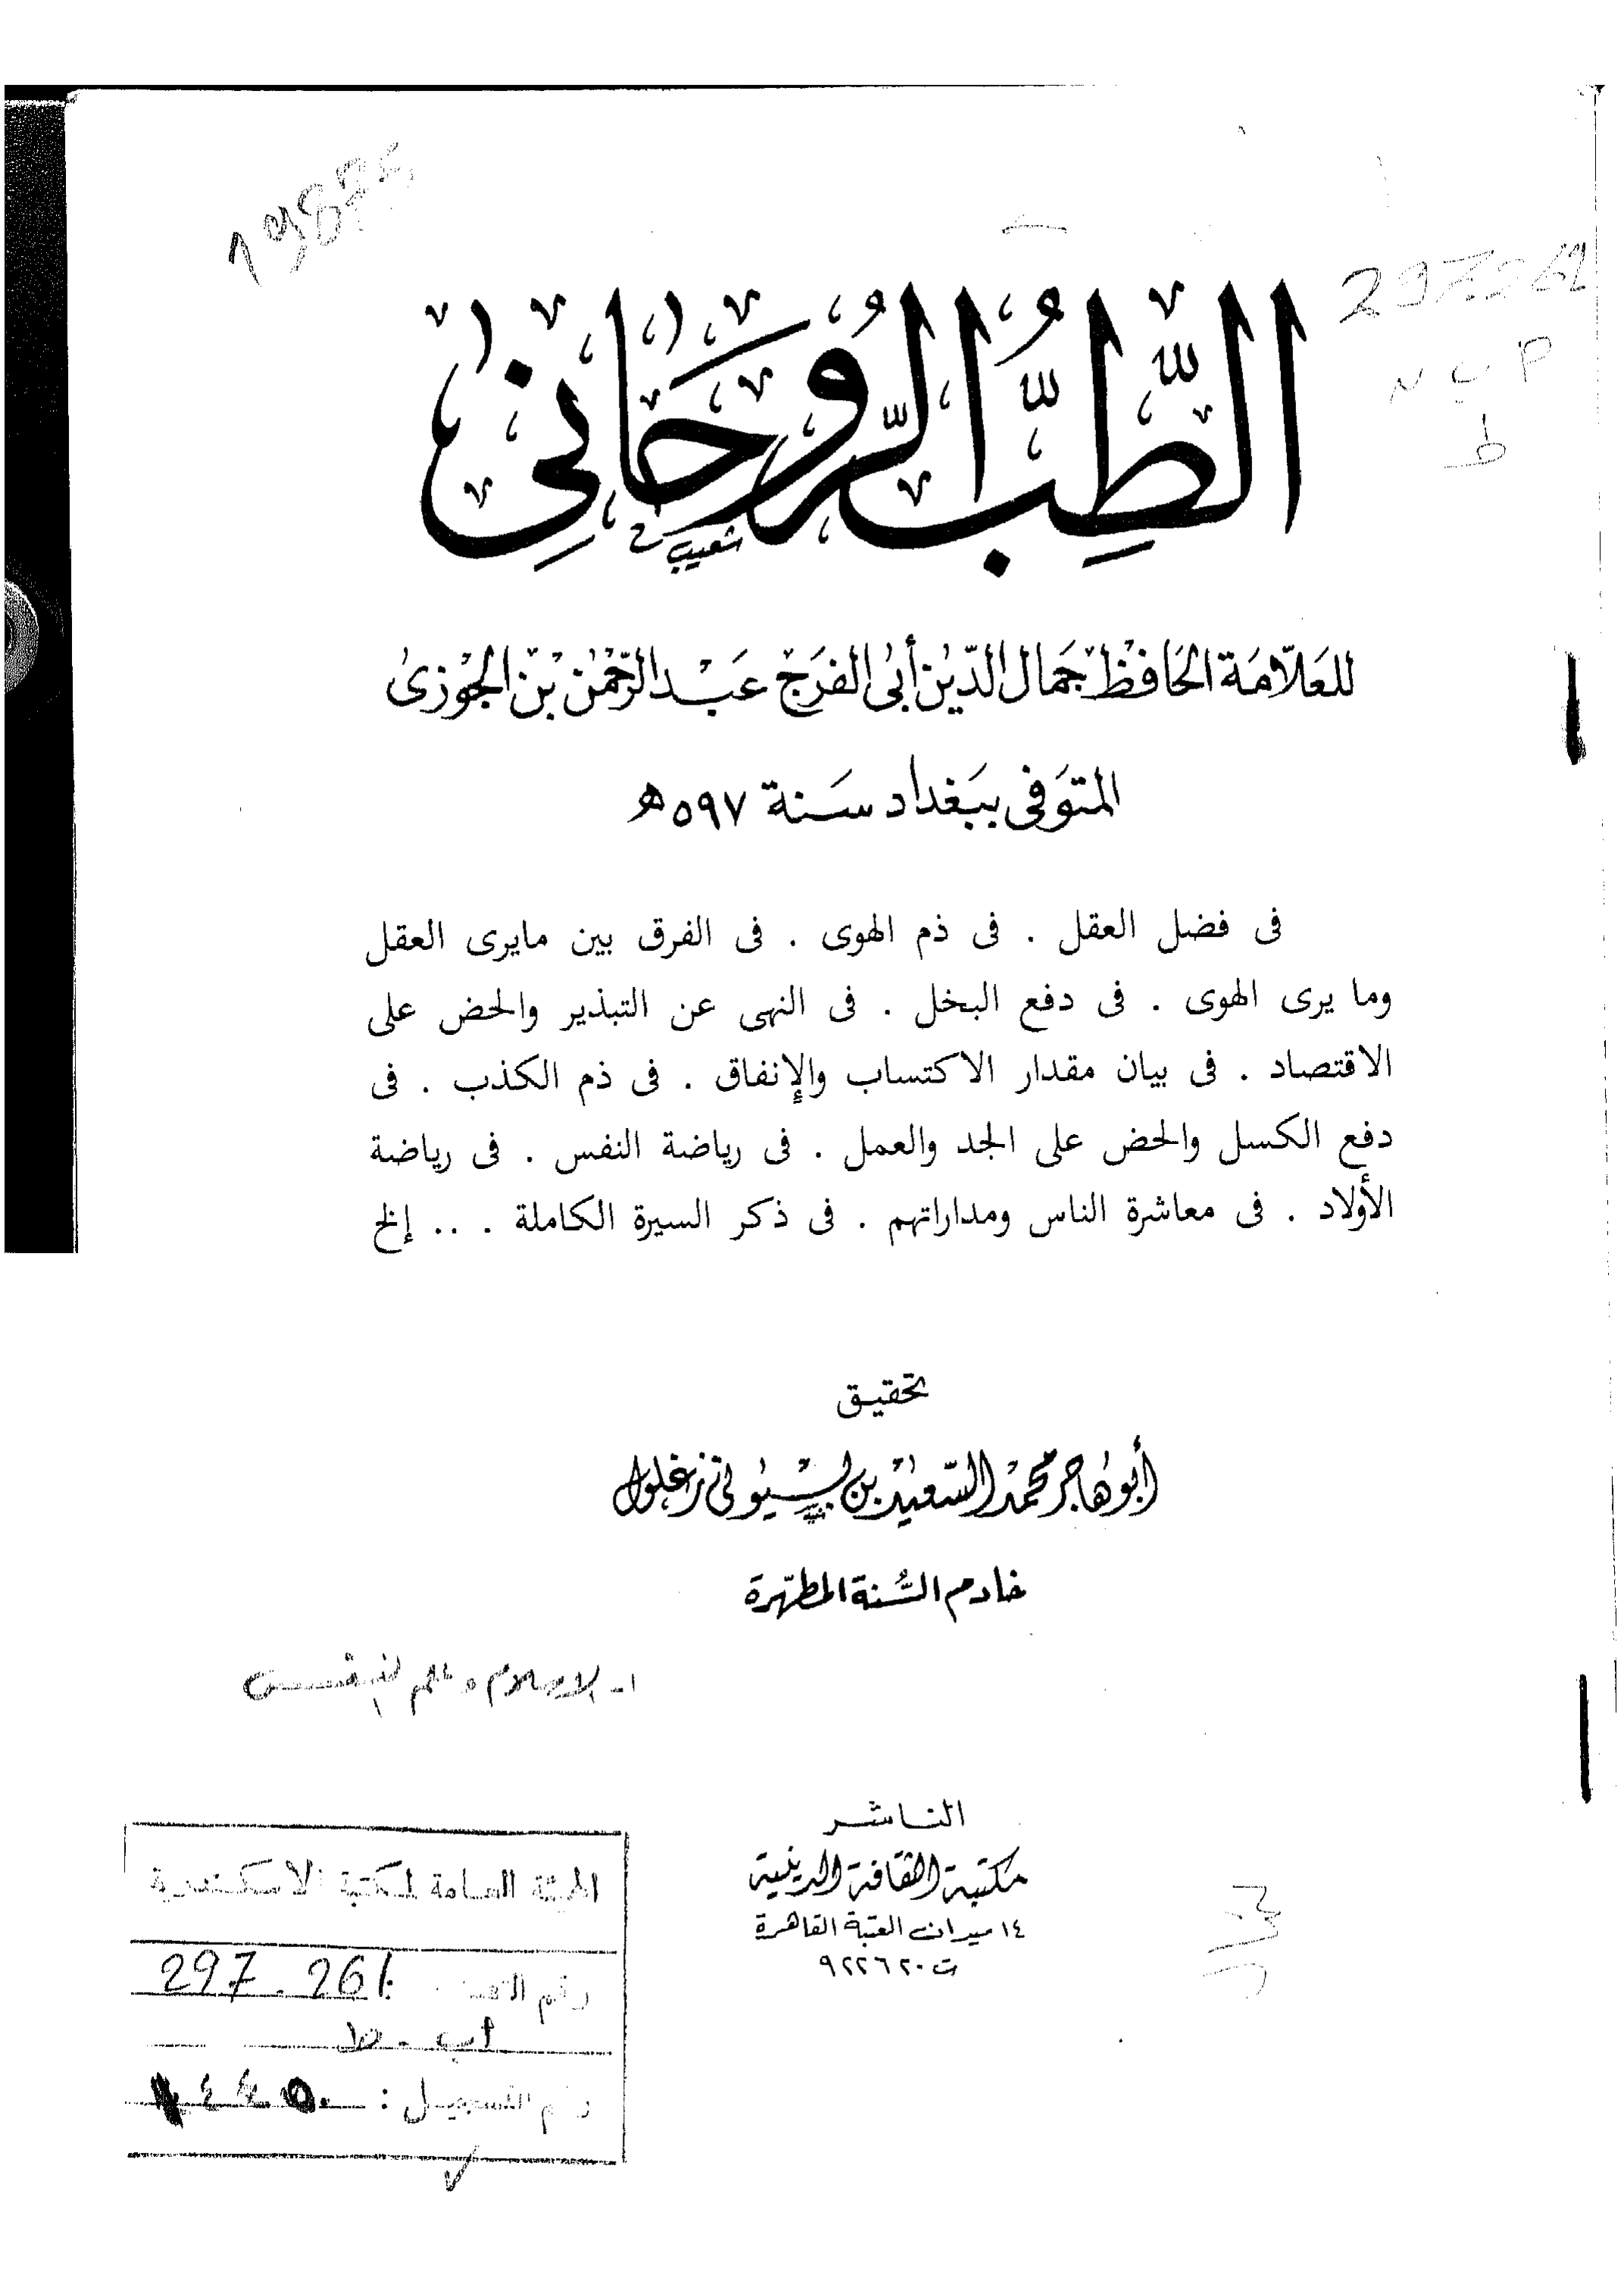 الطِّبُّ الرُّوحَانِي
شعيب
للعَلّامَة الحَافِظ جَمال الدّين أبى الفَرَج عَبْد الرّحْمٰن بْن الجَوْزى
المتوَفى ببَغداد سَنة ٥٩٧ ه
فى فضل العقل . فى ذم الهوى . فى الفرق بين مايرى العقل
وما يرى الهوى . فى دفع البخل . فى النهى عن التبذير والحض على
الاقتصاد . فى بيان مقدار الاكتساب والإنفاق . فى ذم الكذب . فى
دفع الكسل والحض على الجد والعمل . فى رياضة النفس . فى رياضة
الأولاد . فى معاشرة الناس ومداراتهم . فى ذكر السيرة الكاملة . .. إلخ
تحقيق
أبو هاجر محمد السّعيد بن بسيوني زغلول
خادم السُّنة المطهّرة
١- الاسلام وعلم النفس
الناشر
مكتبة الثقافة الدينية
١٤ ميدان العتبة القاهرة
ت ٩٢٢٦٢٠
الهيئة العامة لمكتبة الاسكندرية
297.261
أب - ط
رقم التسجيل :